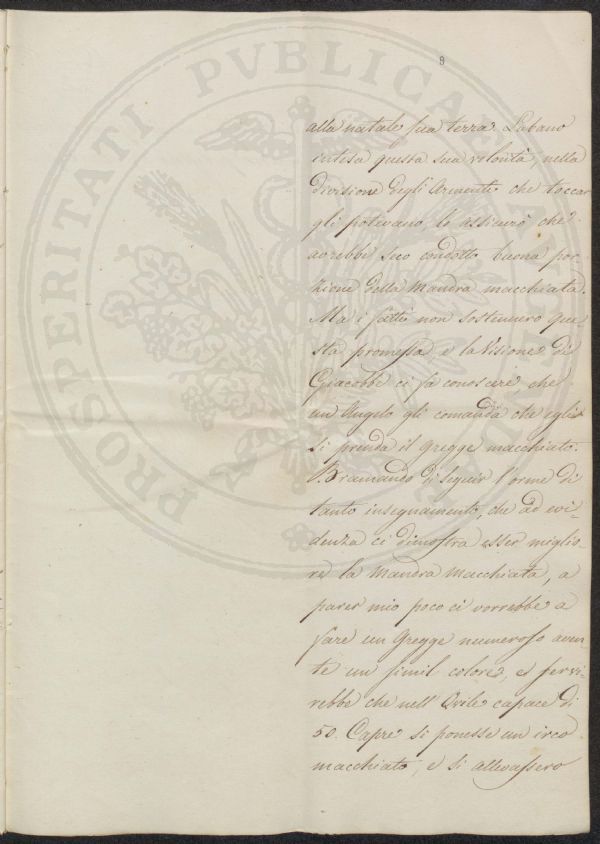 9
alla natale sua terra. Labano
intesa questa sua volontà nella
divisione degli Armenti che toccar
gli potevano, lo assicurò che
avrebbe seco condotto buona por-
zione della Mandra macchiata.
Ma i fatti non sostennero que-
sta promessa e la Visione di
Giacobbe ci fà conoscere che
un Angelo gli comanda che egli
si prenda il gregge macchiato.
Bramando di seguir l'orme di
tanto insegnamento, che ad evi-
denza ci dimostra esser miglio-
re la Mandra Macchiata, a
parer mio poco ci vorrebbe a
fare un Gregge numeroso aven-
te un simil colore, e servi-
rebbe che nell'Ovile capace di
50. Capre si ponesse un irco
macchiato, e si allevassero
PROSPERITATI PVBLICAE